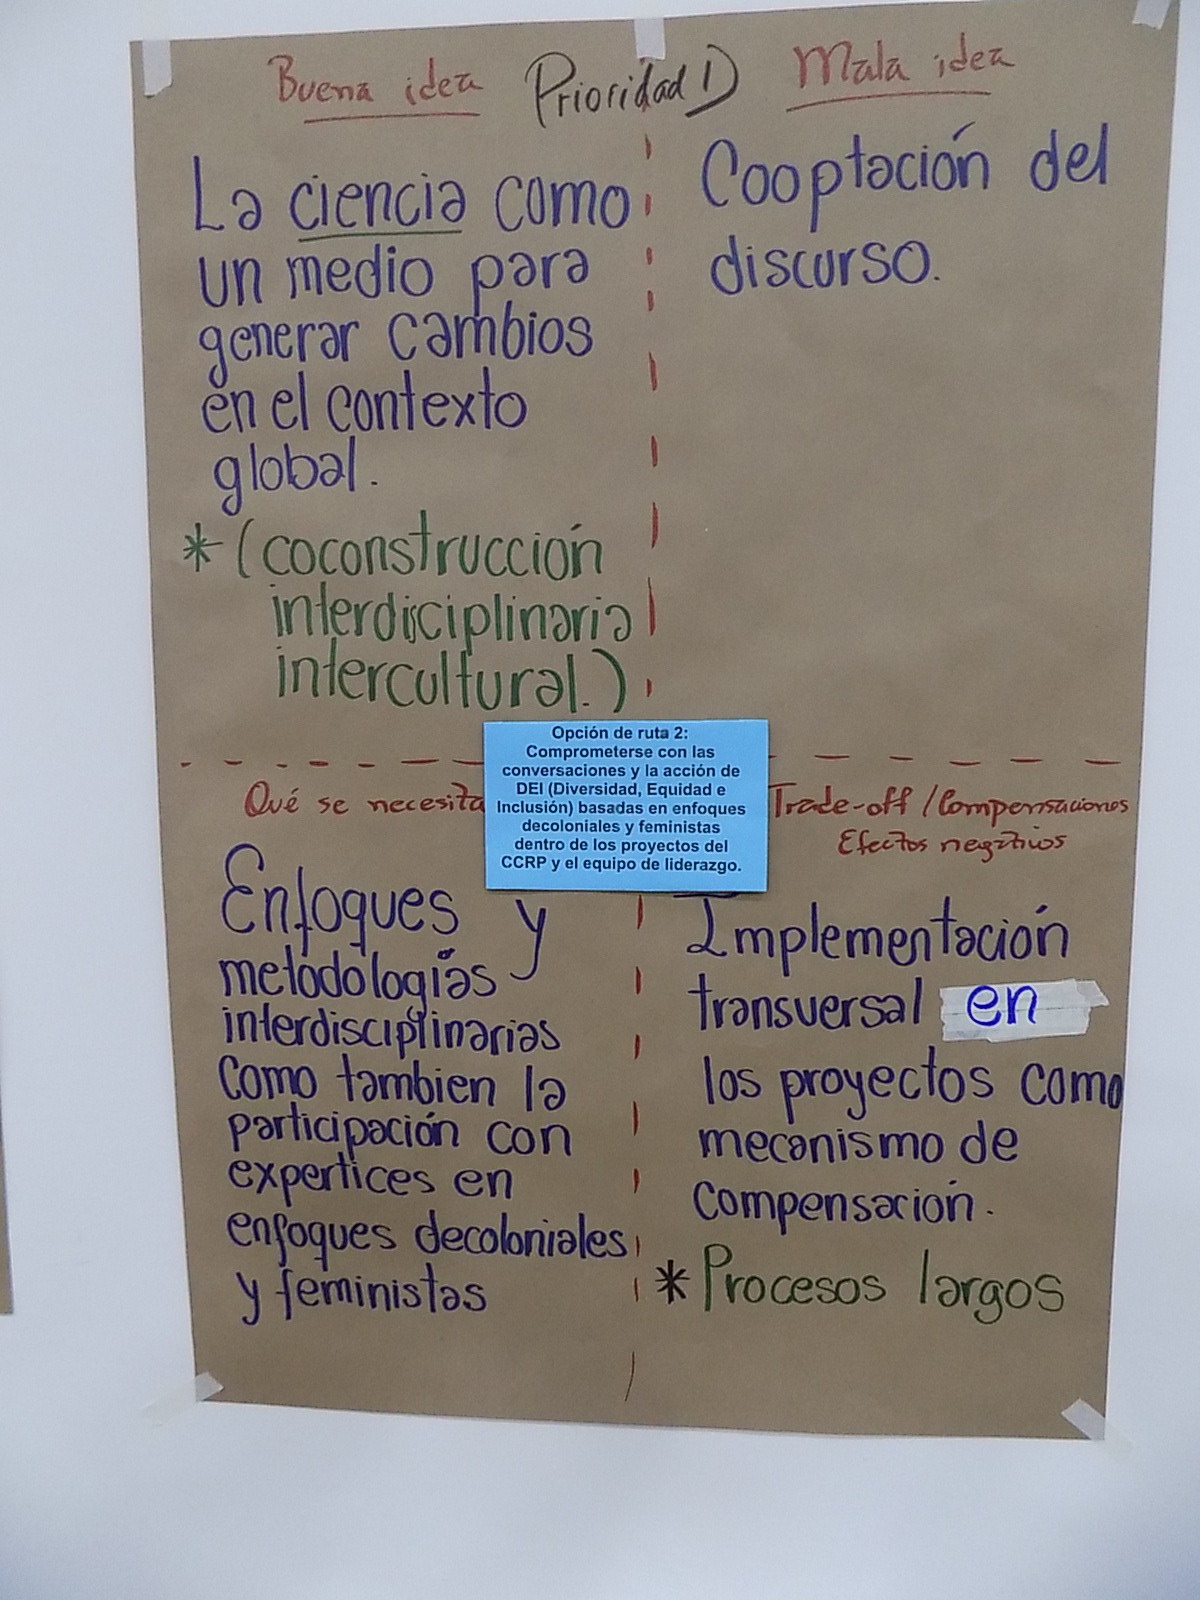 Buena idea
Prioridad 1)
Mala idea
La ciencia como
un medio para
generar cambios
en el contexto
global.
* (coconstrucción
interdisciplinaria
intercultural.)
Cooptación del
discurso.
Opción de ruta 2:
Comprometerse con las
conversaciones y la acción de
DEI (Diversidad, Equidad e
Inclusión) basadas en enfoques
decoloniales y feministas
dentro de los proyectos del
CCRP y el equipo de liderazgo.
Qué se necesita
Enfoques y
metodologías
interdisciplinarias
como tambien la
participación con
expertices en
enfoques decoloniales
y feministas
Trade-off / Compensaciones
Efectos negativos
Implementación
transversal en
los proyectos como
mecanismo de
compensación.
* Procesos largos